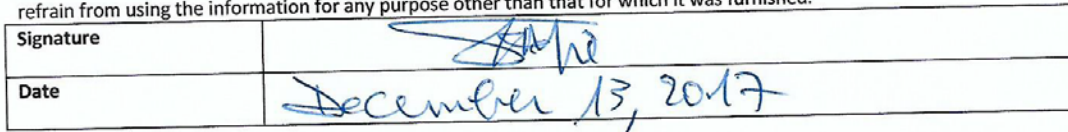 refrain from using the information for any purpose other than that for which it was furnished.
Signature
Date December 13, 2017